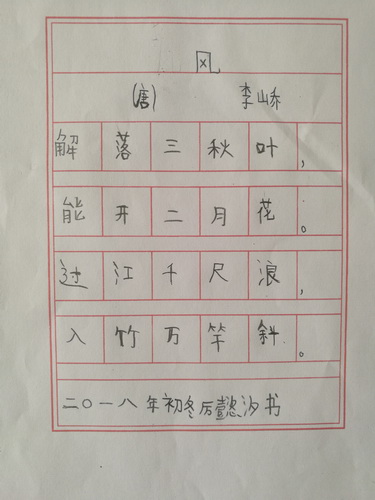 风
(唐) 李峤
解落三秋叶,
能开二月花。
过江千尺浪,
入竹万竿斜。
二〇一八年初冬后懿汐书